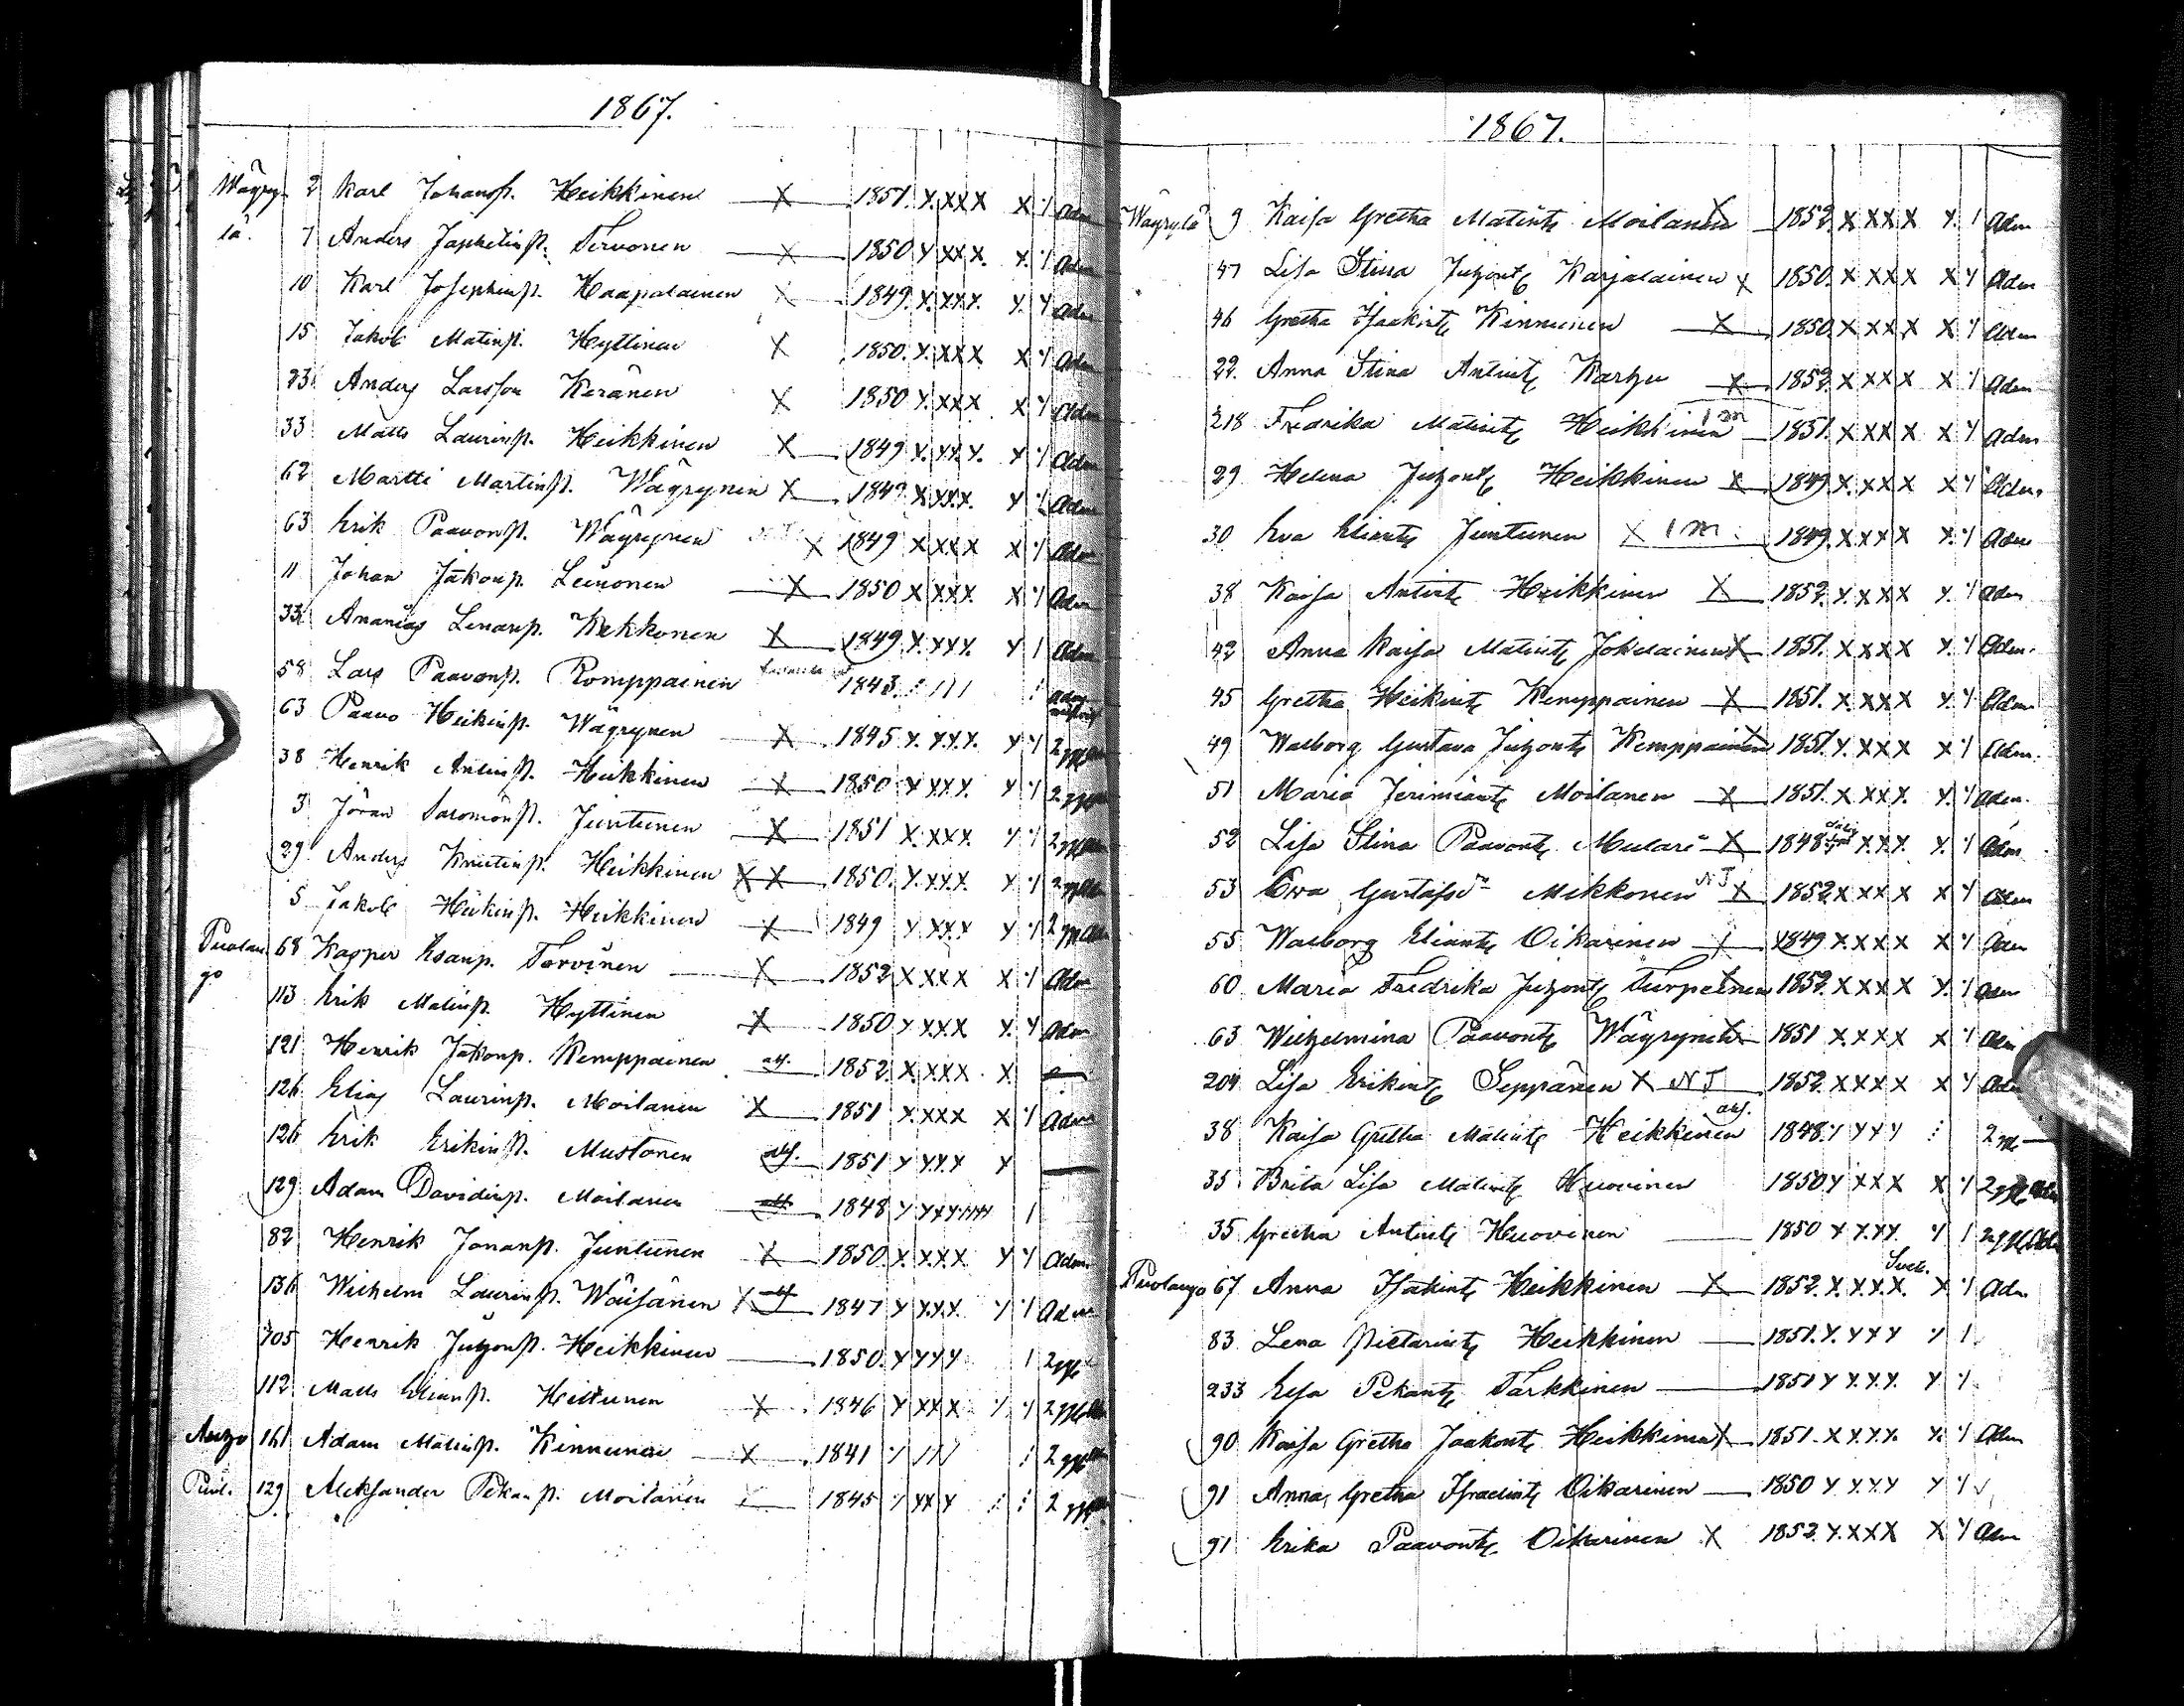 1867.
Wäyry- 2 Karl Johansp. Heikkinen X 1851. X. XXX X Adm
lä. 7 Anders Japhetinp. Tervonen X 1850 Y XXX. X. Adm
10 Karl Josephinp. Haapalainen X 1849. X. XXX. Y. Y Adm
15 Jakob Matinp. Hyttinen X 1850. X. XXX X Adm
23 Anders Larsson Keränen X 1850 Y. XXX X Y Adm
33 Matts Laurinp. Heikkinen X 1849 X. XX. X. X Adm
62 Martti Martinp. Wäyrynen X 1849. X XXX. Y Adm
63 Erik Paavonp. Wäyrynen X 1849 X XXX X Adm
11 Johan Jakonp. Leinonen X 1850 X XXX. X Adm
33 Ananias Lenanp. Kekkonen X 1849. X. XXX. Y 1 Adm
58 Lars Paavonp. Romppainen 1843.
63 Paavo Heikinp. Wäyrynen X 1845 Y. YYY. Y Y 2
38 Henrik Antinp. Heikkinen X 1850 Y YXX. Y 2
3 Jöran Salomonp. Juntunen X 1851 X. XXX. Y Y 2
29 Anders Knutinp. Heikkinen X X 1850. Y. XXX. Y 2
5 Jakob Heikinp. Heikkinen X 1849 Y XXX Y 2
Puolan- 68 Kasper Esanp. Torvinen X 1852 X XXX X Adm
go
113 Erik Matinp. Hyttinen X 1850 Y XXX X. Y Adm
121 Henrik Jakonp. Kemppainen 1852. X. XXX X.
126 Elias Laurinp. Moilanen X 1851 X. XXX X Adm
126 Erik Erikinp. Mustonen 1851 Y YYX Y
129 Adam Davidinp. Moilanen 1848 Y 1
82 Henrik Jonanp. Juntunen X 1850. X. XXX Y Y Adm.
136 Wilhelm Laurinp. Wäisänen X 1847 Y XXX. Y Adm
105 Henrik Juhonp. Heikkinen 1850. Y YYY 1 2
112 Matts Elianp. Heittunen X 1846 Y XXX 2
161 Adam Matinp. Kinnunen X 1841 2
Puol. 129 Aleksander Pekanp. Moilanen 1845 XXX 2
1867.
Wäyrylä 9 Kaisa Gretha Matint: Moilanen X 1852. X XXX Y. 1 Adm
47 Lisa Stina Juhont: Karjalainen X 1850. X XXX X Y Adm
46 Gretha Isakint: Kinnunen X 1850. X XXX X Adm
22. Anna Stina Antint: Karhu X 1852. X XXX X Adm
218 Fredrika Matint: Heikkinen 1 m 1851. X XXX X Y Adm
29 Helena Juhont: Heikkinen X 1849. X. XXX X Y Adm.
30 Eva Eliant: Juntunen X 1 m. 1849. X XXX Y. Adm
38 Kaisa Antint: Heikkinen X 1852. Y. XXX Y. Adm
42 Anna Kaisa Matint: Jokelainen X 1851. X XXX Y. Y Adm.
45 Gretha Heikint: Kemppainen X 1851. X. XXX X Y Adm
49 Walborg Gustava Juhont: Kemppainen X 1851. Y. XXX X Adm.
51 Maria Jerimiant: Moilanen X 1851. X XXX. Y. Y Adm.
52 Lisa Stina Paavont: Mulari X 1848 XXX. Y. Adm
53 Ewa Gustafsd:r Mikkonen NJ X 1852 X XXX X Y Adm
55 Walborg Eliant: Oikarinen 1849. X XXX X Adm
60 Maria Fredrika Juhont: Turpeinen X 1852. X XXX X. Adm
63 Wilhelmina Paavont: Wäyrynen X 1851 X XXX X Adm
204 Lisa Erikint: Seppänen X NJ 1852. X XXX X Y Adm
38 Kaisa Gretha Matint: Heikkinen 1848. YYY 2
35 Brita Lisa Matint: Huovinen 1850 Y XXX X 2
35 Gretha Antint: Huovinen 1850 X XXX. Y 1 2
Puolango 67 Anna Isakint: Heikkinen X 1852. X. XXX. X Adm
83 Lena Pietarint: Heikkinen 1851. Y. YYY 1
233 Esa Pekant: Tarkkinen 1851 Y YYY. Y
90 Kaisa Gretha Jaakont: Heikkinen X 1851. X YYY. Y. Y Adm
91 Anna Gretha Israelint: Oikarinen 1850 Y YYY Y Y
91 Erika Paavont: Oikarinen X 1852 Y. XXX X Y Adm